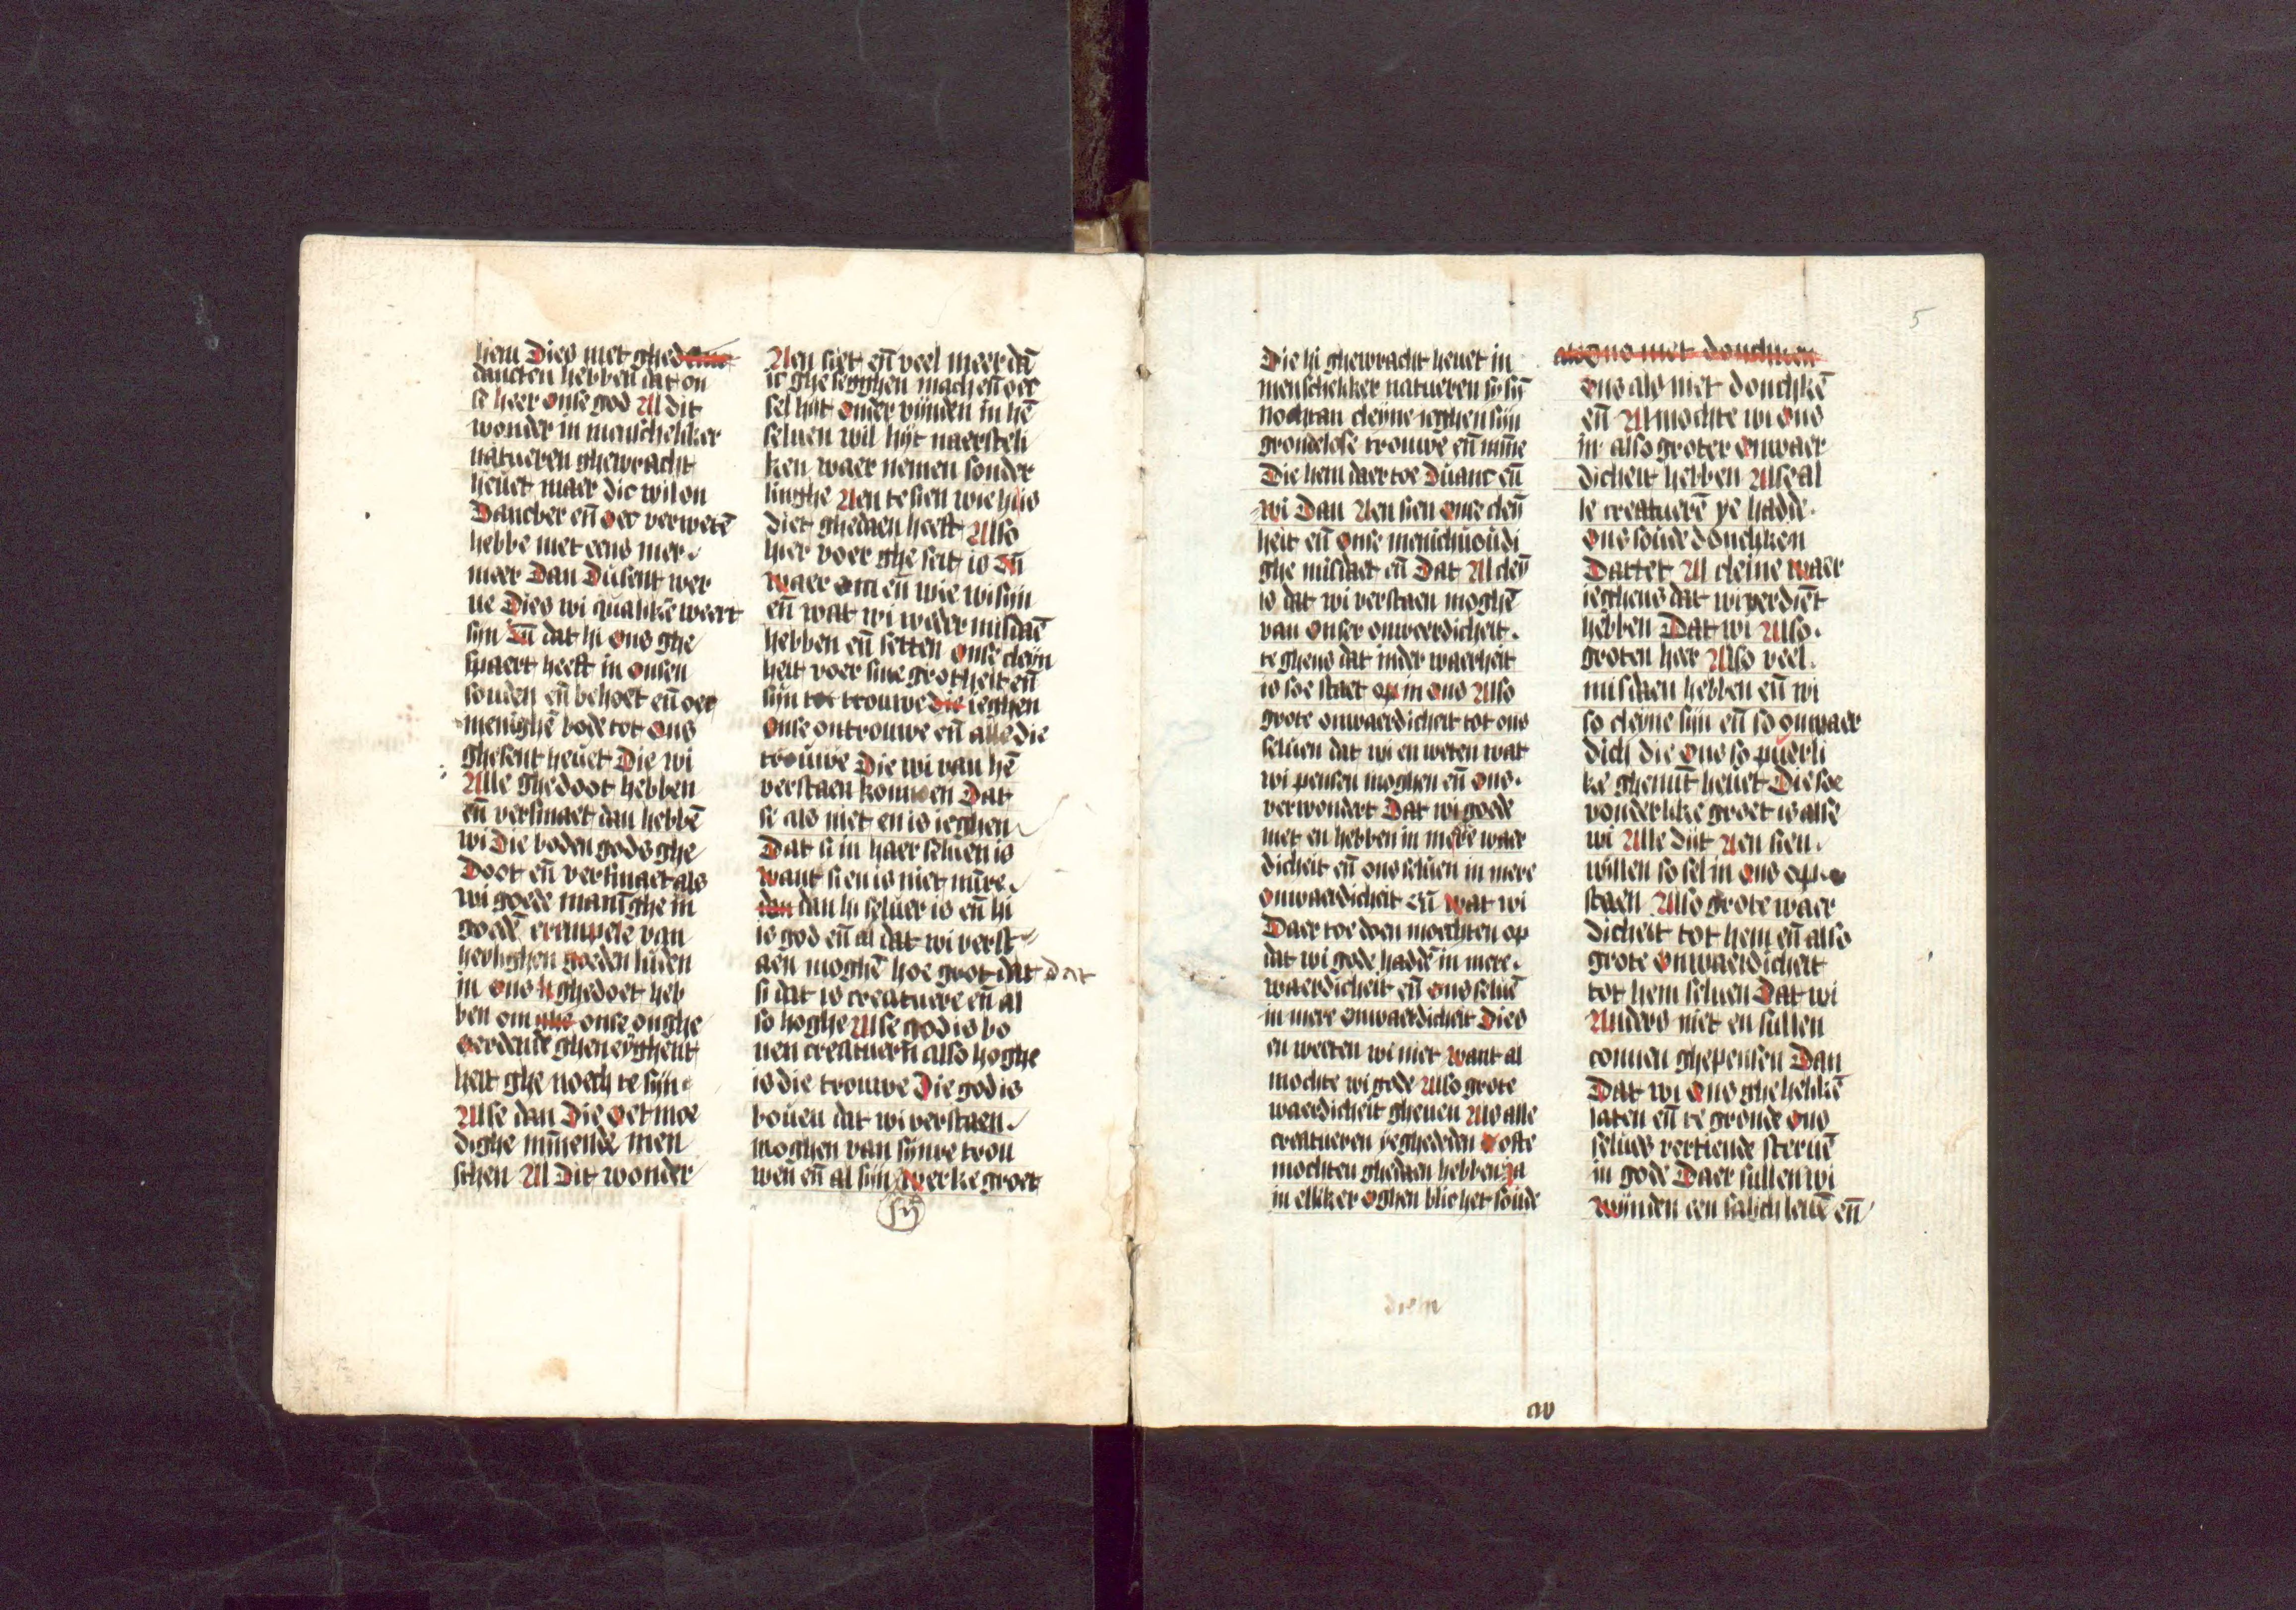 hem Dies niet ghed
dancten hebben dat on
se heer onse god Al dit
wonder in menschelicker
natueren ghewracht
heuet maer dic wil on
Dancber en̄ oec verwetē
hebbe niet eens mer
meer Dan Dusent wer
ue Dies wi qualikē weert
sijn En̄ dat hi ons ghe
spaert heeft in onsen
sonden en̄ behoet en̄ oec
menighē bode tot ons
ghesent heuet Die wi
Alle ghedoot hebben
en̄ versmaet dan hebbē
wi Die boden gods ghe
Doot en̄ versmaet als
wi goede manīghe in
goedē exempele van
heylighen goeden luden
in ons ghedoet heb
ben om onse onghe
oerdende gheneyghent
heit ghe noech te sijn
Alse dan Die oetmoe
dighe mīnende men
schen Al Dit wonder
Aen siet en̄ veel meer dā
ic ghesegghen mach en̄ oec
sel hijt onder vijnden in hē
seluen wil hijt naersteli
ken waer nemen sonder
linghe Aen te sien wie hijs
diet ghedaen heeft Also
hier voer ghe seit is En̄
waer om en̄ wie wi sijn
en̄ wat wi weder misdaē
hebben en̄ setten onse cleyn
heit voer sine grotheit en̄
sijn tot trouwe die ieghen
onse ontrouwe en̄ alle die
trouwe Die wi van hē
verstaen konnen Dat
se als niet en is ieghen
Dat si in haer seluen is
want si en is niet mīre
dan dan hi seluer is en̄ hi
is god en̄ al dat wi verst
aen moghē hoe groot dat dat
si dat is creatuere en̄ al
so hoghe Alse god is bo
uen creatuern̄ also hoghe
is die trouwe Die god is
bouen dat wi verstaen
moghen van sijnre trou
wen en̄ al sijn werke groet
5
Die hi ghewracht heuet in
menschelicker natueren sy sijn̄
nochtan cleyne ieghen sijn
grondelose trouwe en̄ mīne
Die hem daer toe Duanc en̄
wi Dan Aen sien onse cleyn̄
heit en̄ onse menichuoudi
ghe misdaet en̄ Dat Al cleyn̄
is dat wi verstaen moghē
van onser onweerdicheit
te ghens dat inder waerheit
is soe staet op in ons Also
grote onwaerdicheit tot ons
seluen dat wi en weten wat
wi pensen moghen en̄ ons
verwondert Dat wi gode
niet en hebben in mere waer
dicheit en̄ ons seluen in mere
onwaerdicheit En̄ wat wi
Daer toe doen moechten op
dat wi gode haddē in mere
waerdicheit en̄ ons seluē
in mere onwaerdicheit Dies
en weeten wi niet want al
mochte wi gode Also grote
waerdicheit gheuen Als alle
creatueren ye ghededen ofte
mochten ghedaen hebben ja
in elliker oghen blic het soude
als ons niet donchken
ons als niet donchkē
en̄ Al mochte wi ons
in also groter onwaer
dicheit hebben Alse al
le creatuerē ye hadde
ons soude donchken
Dattet Al cleine waer
ieghens dat wi verdiēt
hebben Dat wi Also
groten heer Also veel
misdaen hebben en̄ wi
so cleyne sijn en̄ so onwaer
dich die ons so puerli
ke ghemīt heuet Die soe
vonderlike groet is alse
wi Alle dijt Aen sien
willen so sel in ons op
staen Also grote waer
dicheit tot hem en̄ also
grote onwaerdicheit
tot hem seluen Dat wi
Anders niet en sullen
connen ghepensen Dan
Dat wi ons ghe helikē
laten en̄ te gronde ons
selues vertiende steruē
in gode Daer sullen wi
wijnden een salich leuē en̄